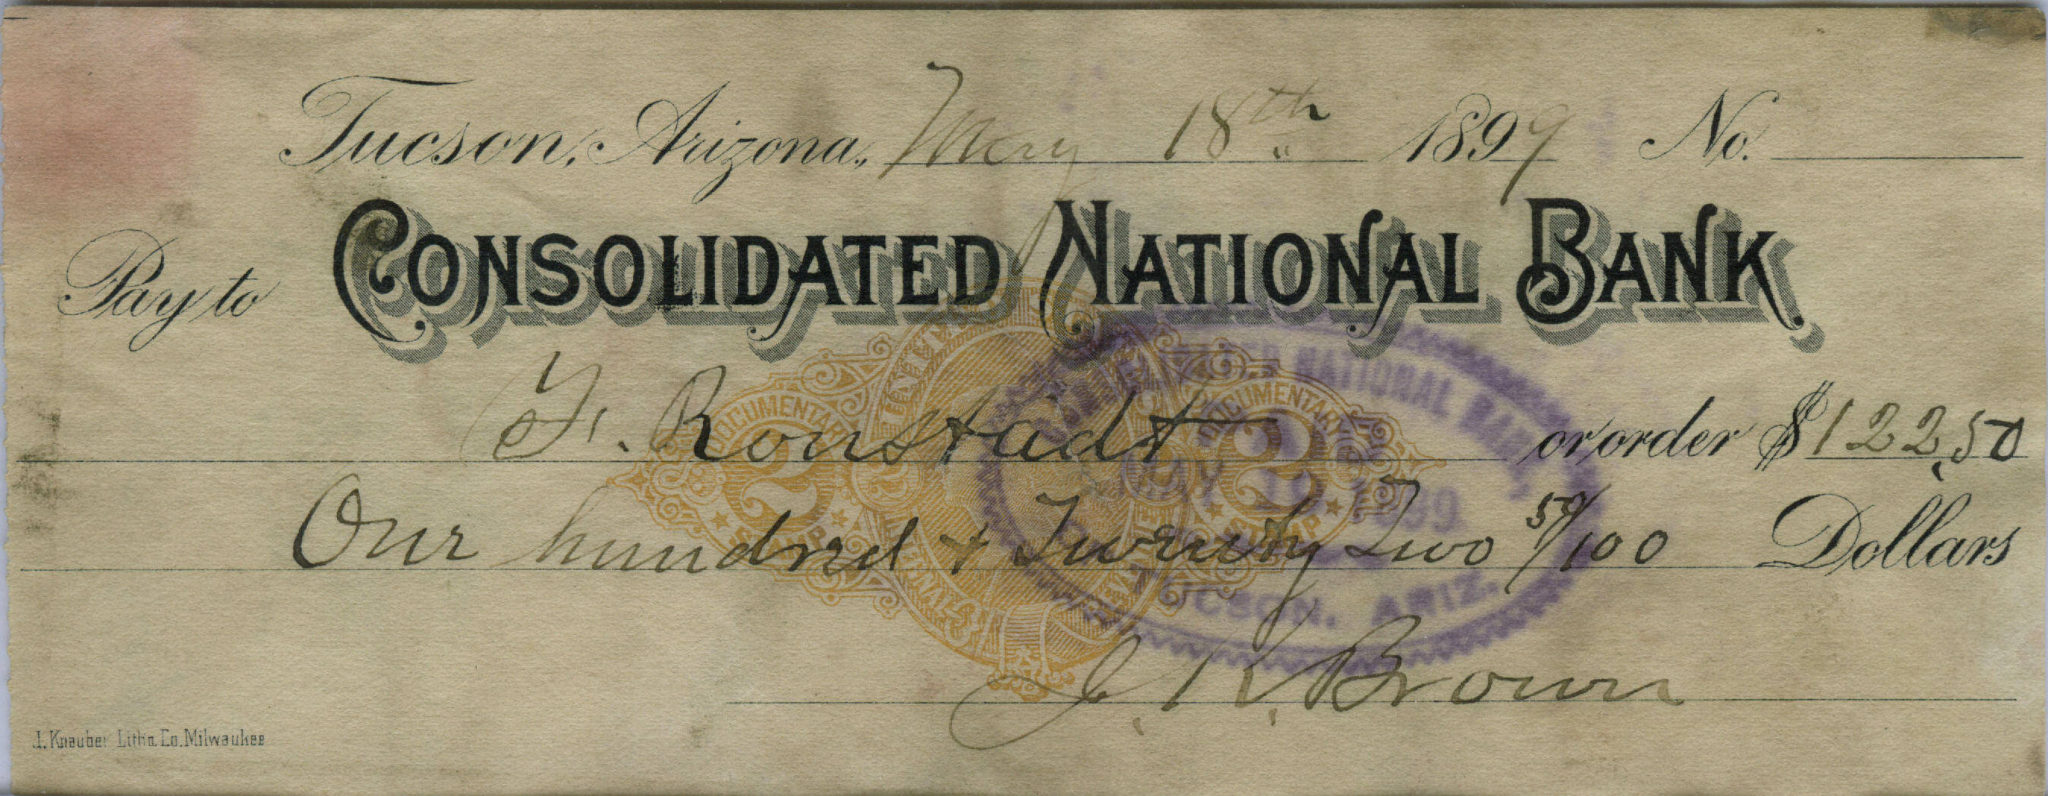 Tucson, Arizona, May 18th 1899 No.
Pay to CONSOLIDATED NATIONAL BANK.
F. Ronstadt or order $122.50
One hundred + Twenty Two 50/100 Dollars
J. K. Brown
J. Knauber Litho. Co. Milwaukee
UNITED
DOCUMENTARY
2
STAMP
INTERNAL
DOCUMENTARY
2
STAMP
NATIONAL BANK
MAY 1899
TUCSON, ARIZ.